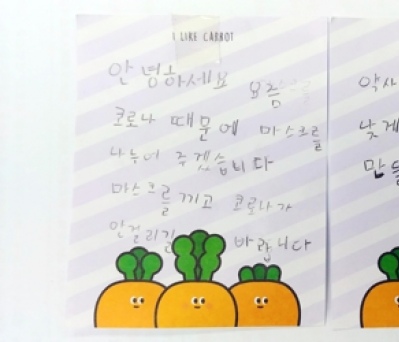 I LIKE CARROT
안녕하세요 요즘
코로나 때문에 마스크를
나누어 주겠습니다
마스크를 끼고 코로나가
안걸리길 바랍니다
약사
낮게
만들